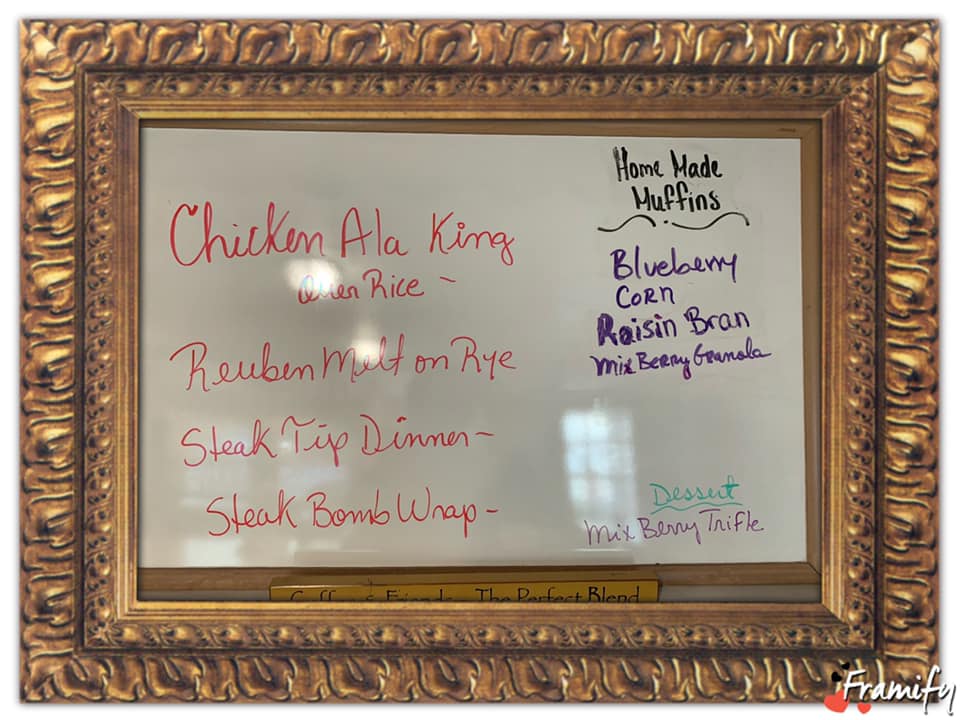 Chicken Ala King
over Rice ~
Reuben Melt on Rye
Steak Tip Dinner -
Steak Bomb Wrap -
Home Made
Muffins
Blueberry
Corn
Raisin Bran
Mix Berry Granola
Dessert
Mix Berry Trifle
Coffee & Friends - The Perfect Blend
Framify